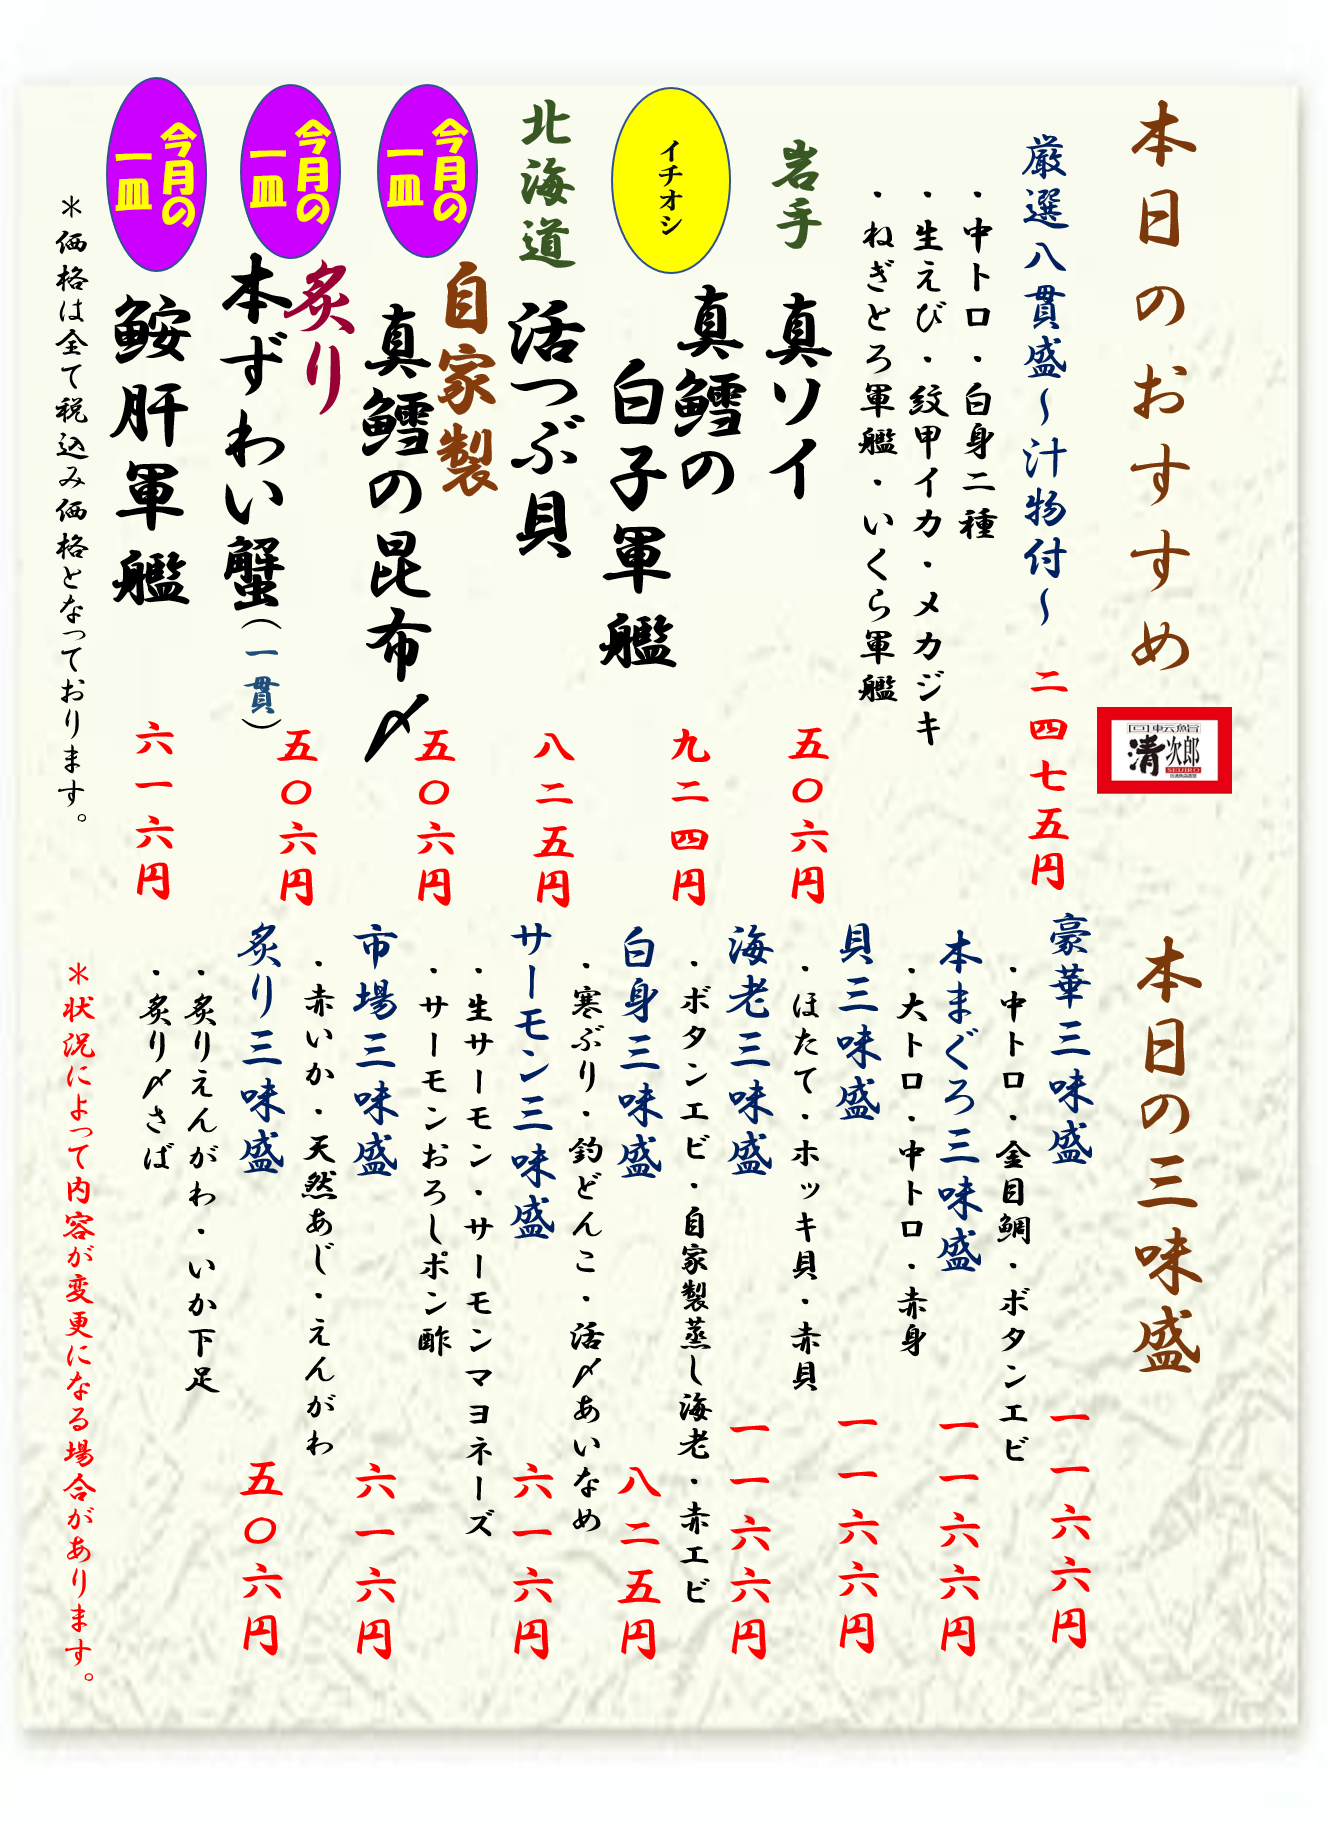 本日のおすすめ
回転鮨
清次郎
SEIJIRO
厳選八貫盛～汁物付～ 二四七五円
・中トロ・白身二種
・生えび・紋甲イカ・メカジキ
・ねぎとろ軍艦・いくら軍艦
岩手 真ソイ 五〇六円
イチオシ
真鱈の
白子軍艦 九二四円
北海道 活つぶ貝 八二五円
今月の
一皿
自家製
真鱈の昆布〆 五〇六円
今月の
一皿
炙り
本ずわい蟹(一貫) 五〇六円
今月の
一皿
鮟肝軍艦 六一六円
＊価格は全て税込み価格となっております。
本日の三味盛
豪華三味盛 一一六六円
・中トロ・金目鯛・ボタンエビ
本まぐろ三味盛 一一六六円
・大トロ・中トロ・赤身
貝三味盛 一一六六円
・ほたて・ホッキ貝・赤貝
海老三味盛 一一六六円
・ボタンエビ・自家製蒸し海老・赤エビ
白身三味盛 八二五円
・寒ぶり・釣どんこ・活〆あいなめ
サーモン三味盛 六一六円
・生サーモン・サーモンマヨネーズ
・サーモンおろしポン酢
市場三味盛 六一六円
・赤いか・天然あじ・えんがわ
炙り三味盛 五〇六円
・炙りえんがわ・いか下足
・炙り〆さば
＊状況によって内容が変更になる場合があります。